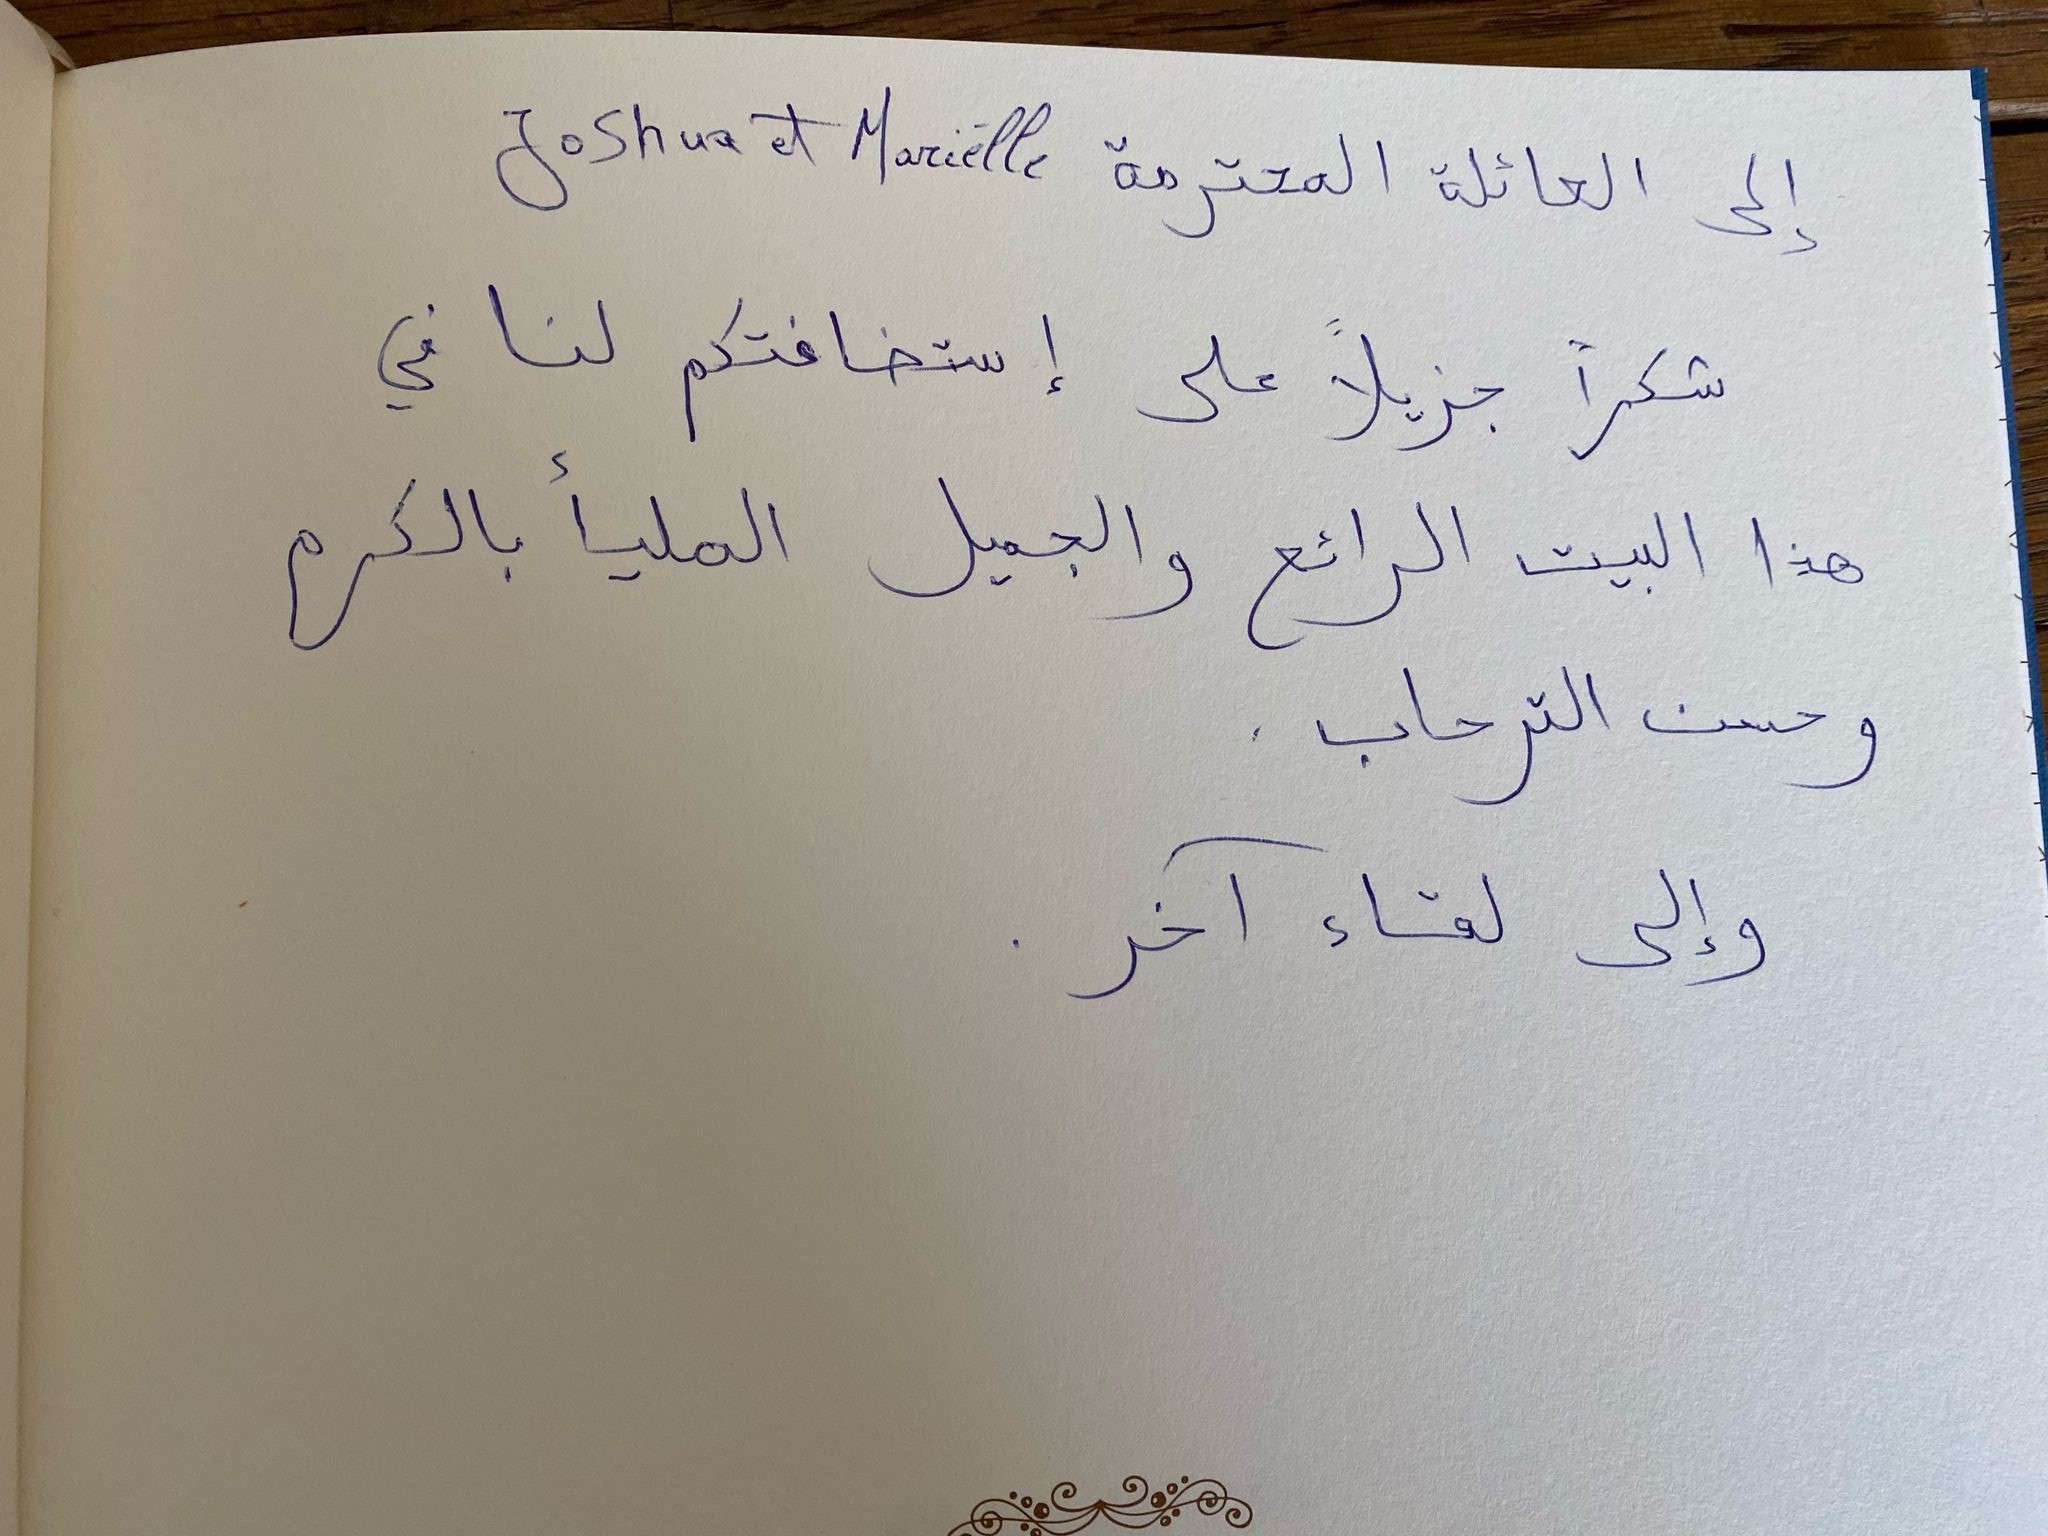 إلى العائلة المحترمة Joshua et Mariëlle
شكراً جزيلاً على إستضافتكم لنا في
هذا البيت الرائع والجميل المليأ بالكرم
وحسن الترحاب.
وإلى لقاء آخر.